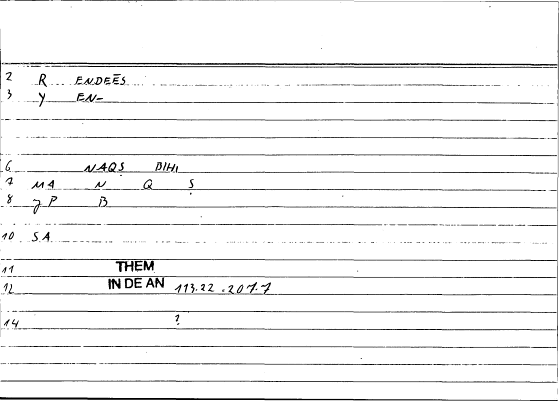 2 R ENDEĒS
3 Y EN-
6 NAQS BIHI
7 MA N Q Ṣ
8 P B
10 SA
11 THEM
12 IN DE AN 113.22.207.7
14 ?